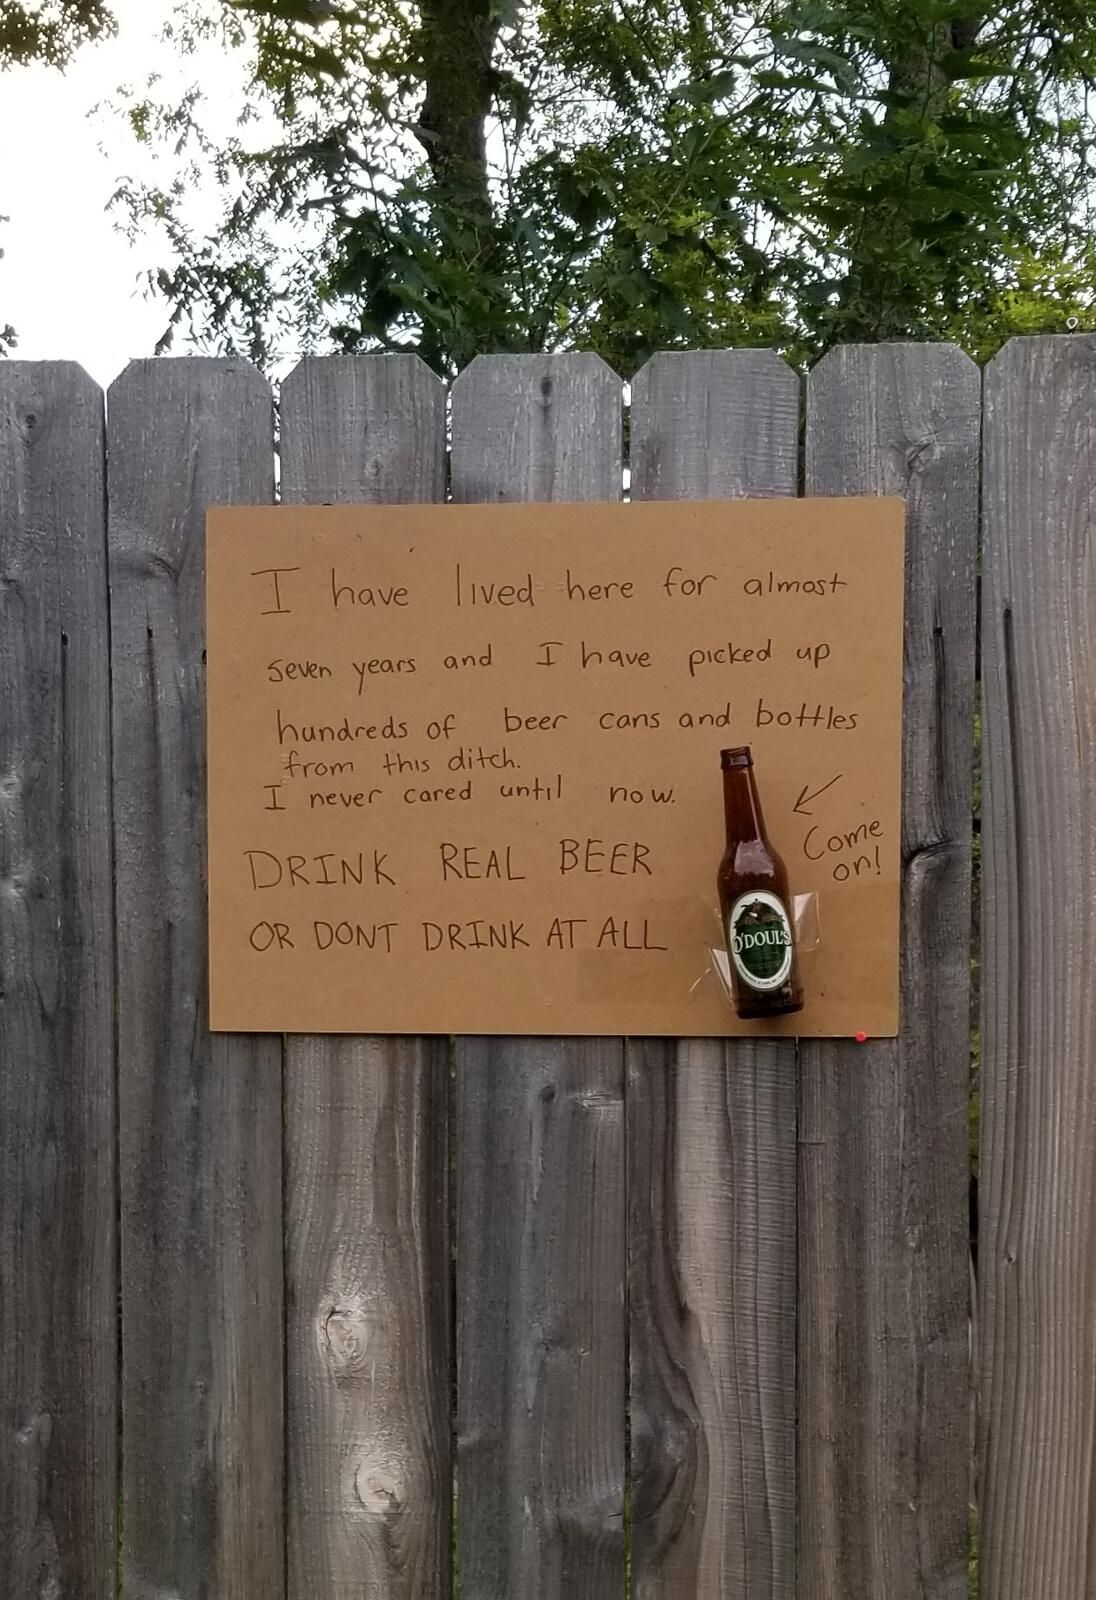 I have lived here for almost
seven years and I have picked up
hundreds of beer cans and bottles
from this ditch.
I never cared until now.
DRINK REAL BEER
OR DONT DRINK AT ALL
Come
on!
O'DOUL'S